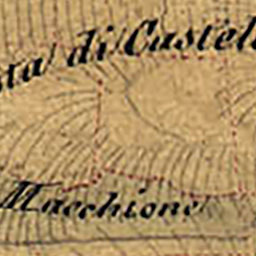 di Castel
Macchione